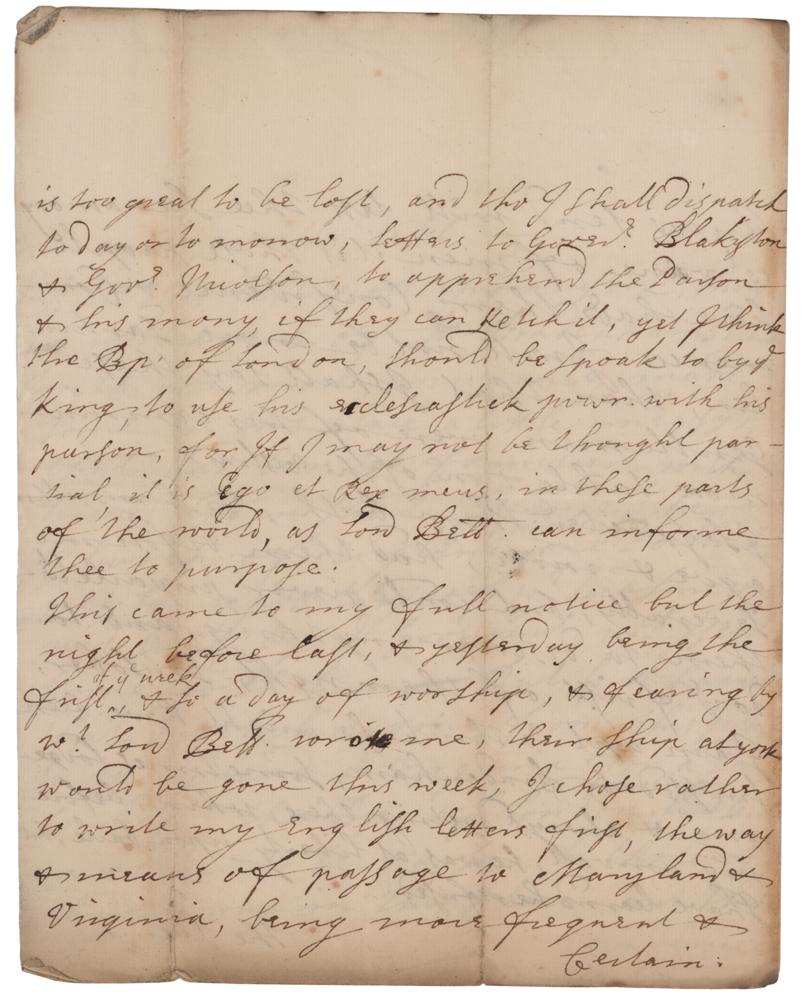 is too great to be lost, and tho I shall dispatch
to day or to morrow, letters to Goverr. Blakyston
& Govr. Nicolson, to apprehend the Parson
& his mony, if they can ketch it, yet I think
the Bp. of London, should be spoak to by ye
King, to use his ecclesiastick powr. with his
parson, for, If I may not be thought par-
tial, it is Ego et Rex meus, in these parts
of the world, as Lord Bell. can informe
thee to purpose.
This came to my full notice but the
night before last, & yesterday being the
first of ye week, & so a day of worship, & fearing by
wt. Lord Bell. wrote me, their ship at york
would be gone this week, I chose rather
to write my English letters first, the way
& means of passage to Maryland &
Virginia, being more frequent &
Certain.